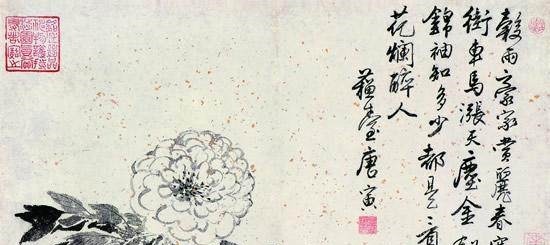 穀雨豪家賞麗春
街車馬漲天塵金
錦袖知多少都是看
花爛醉人
蘇臺唐寅